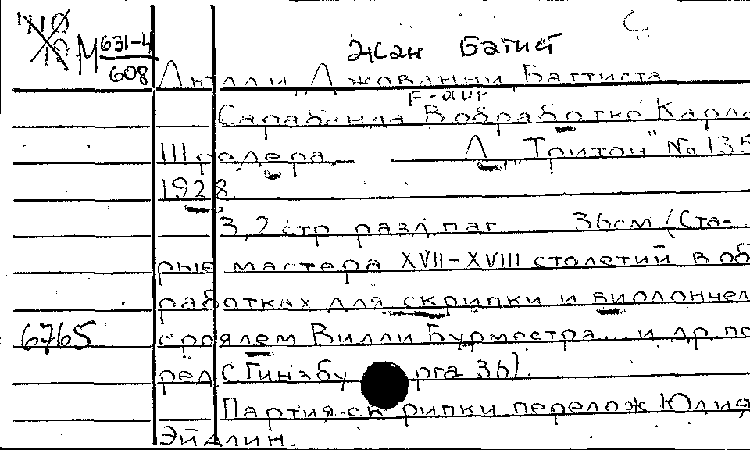 М 631-4
608
Жан Батист
Люлли, Джованни Баттиста
F-dur
Сарабанда В обработке Карла
III редера Л "Тритон" № 135
1928
3,2 стр разд паг 36 см (Ста-
рые мастера XVII-XVIII столетий в об
работках для скрипки и виолончел
6765
роялем Вилли Бурместра и др по
ред С Гинзбурга 36).
Партия скрипки перелож Юлия
Эйдлин.